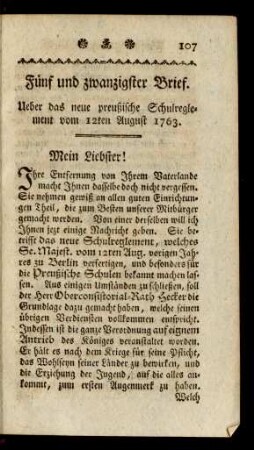 107
Fünf und zwanzigster Brief.
Ueber das neue preußische Schulregle-
ment vom 12ten August 1763.
Mein Liebster!
Ihre Entfernung von Ihrem Vaterlande
macht Ihnen dasselbe doch nicht vergessen.
Sie nehmen gewiß an allen guten Einrichtun-
gen Theil, die zum Besten unserer Mitbürger
gemacht werden. Von einer derselben will ich
Ihnen jezt einige Nachricht geben. Sie be-
trifft das neue Schulreglement, welches
Se. Majest. vom 12ten Aug. vorigen Jah-
res zu Berlin verfertigen, und besonders für
die Preußische Schulen bekannt machen las-
sen. Aus einigen Umständen zu schließen, soll
der Herr Oberconsistorial-Rath Hecker die
Grundlage dazu gemacht haben, welche seinen
übrigen Verdiensten vollkommen entspricht.
Indessen ist die ganze Verordnung auf eignem
Antrieb des Königes veranstaltet worden.
Er hält es nach dem Kriege für seine Pflicht,
das Wohlseyn seiner Länder zu bewirken, und
die Erziehung der Jugend, auf die alles an-
kommt, zum ersten Augenmerk zu haben.
Welch